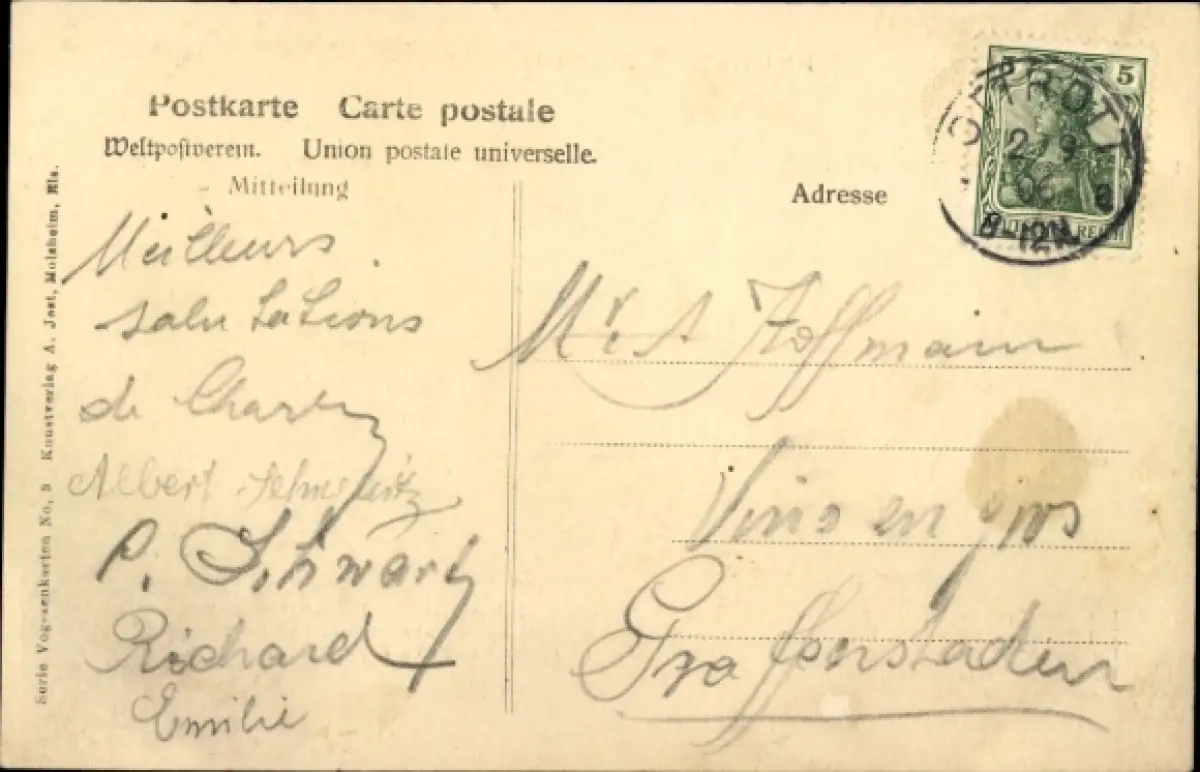 Postkarte Carte postale
Weltpostverein. Union postale universelle.
Mitteilung
Adresse
5
OTTROTT
2 9
06
8-12N.
REICH
Meilleurs
salutations
de
Albert
P. Schwartz
Richard
Emilie
Hoffmann
Vins en gros
Graffenstaden
Serie Vogesenkarten No. 5 Kunstverlag A. Jost, Molsheim, Els.